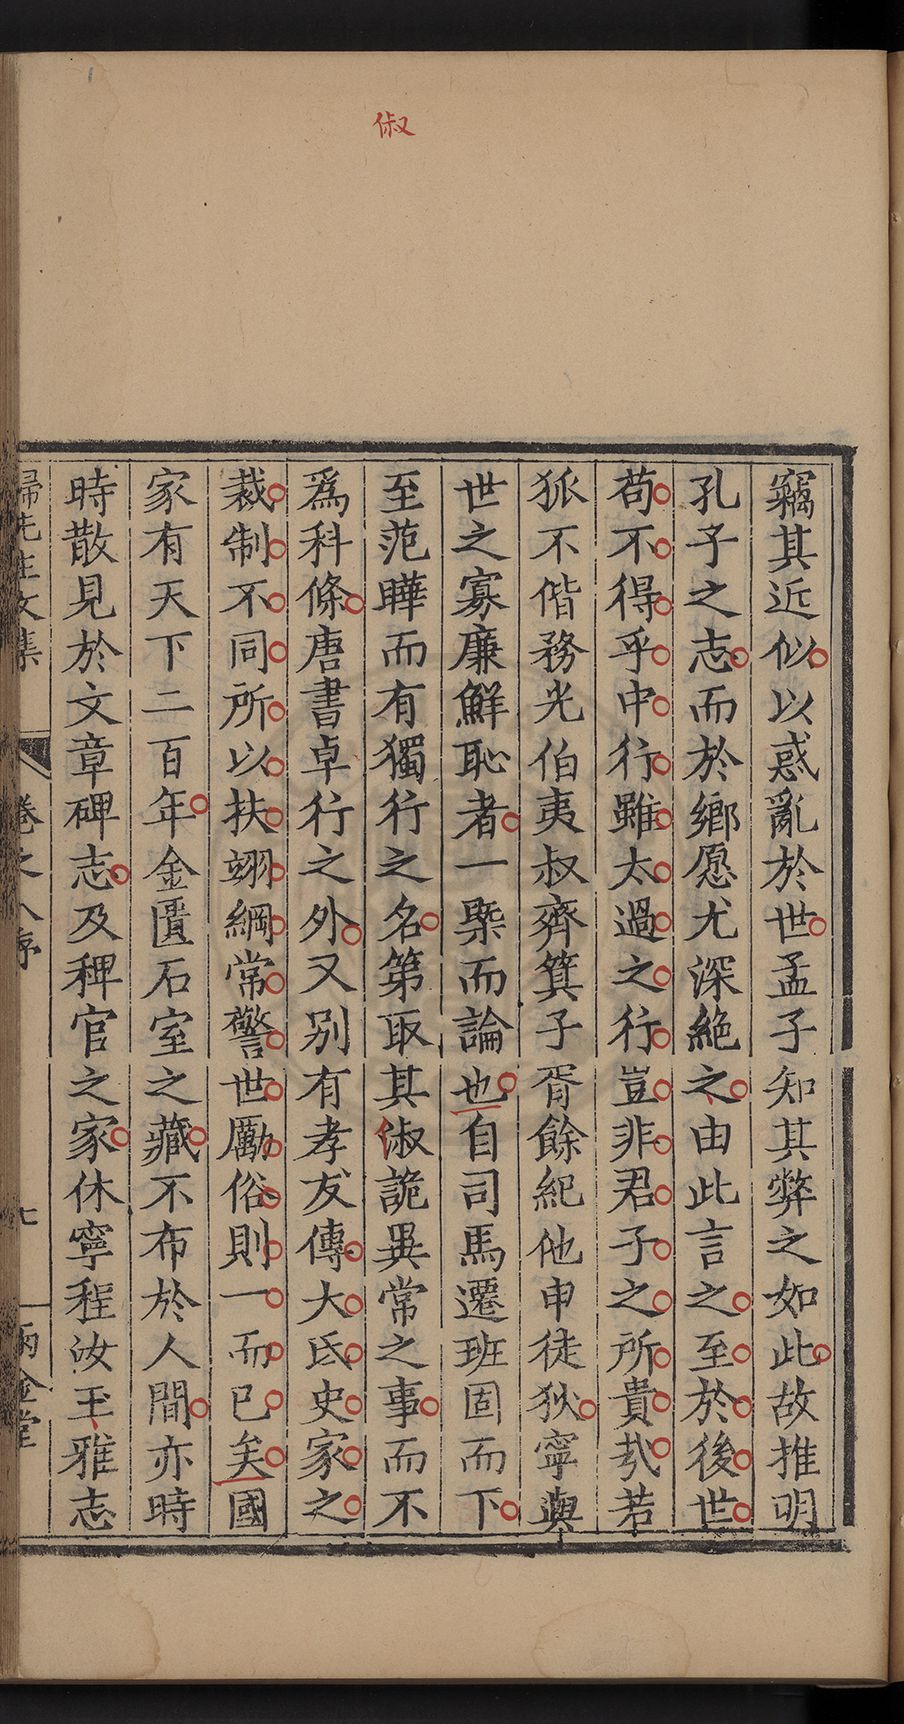 俶
竊其近似以惑亂於世孟子知其弊之如此故推明
孔子之志而於鄉愿尤深絶之由此言之至於後世
苟不得乎中行雖太過之行豈非君子之所貴㢤若
狐不偕務光伯夷叔齊箕子胥餘紀他申徒狄寧與
世之寡廉鮮恥者一槩而論也自司馬遷班固而下
至范曄而有獨行之名第取其俶詭異常之事而不
爲科條唐書卓行之外又别有孝友傳大氐史家之
裁制不同所以扶翊綱常警世勵俗則一而已矣國
家有天下二百年金匱石室之藏不布於人間亦時
時散見於文章碑志及稗官之家休寧程汝玉雅志
歸先生文集 卷之八序 七